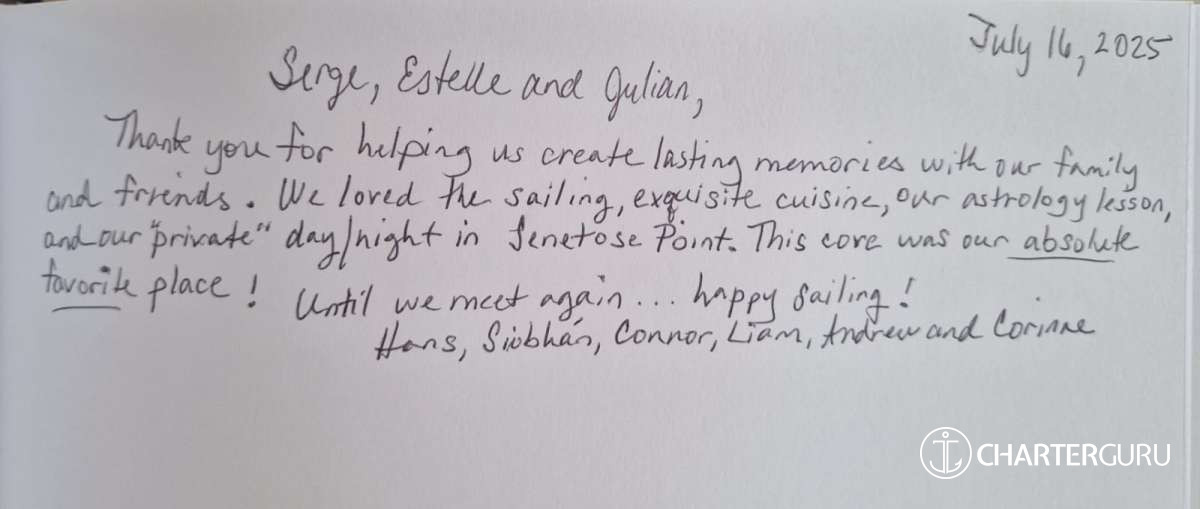 July 16, 2025
Serge, Estelle and Julian,
Thank you for helping us create lasting memories with our family
and friends. We loved the sailing, exquisite cuisine, our astrology lesson,
and our "private" day/night in Senetose Point. This cove was our absolute
favorite place! Until we meet again... happy sailing!
Hans, Siobhán, Connor, Liam, Andrew and Corinne
CHARTERGURU